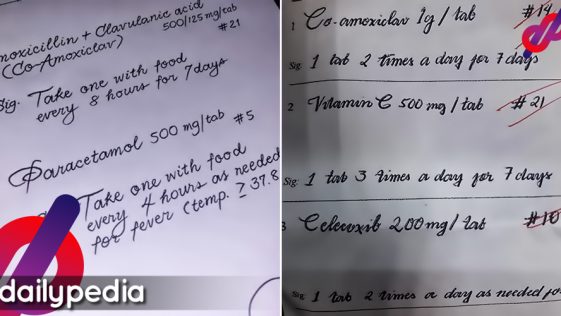 moxicillin + Clavulanic acid
(Co-Amoxiclav) 500/125 mg/tab
#21
Sig. Take one with food
every 8 hours for 7 days
Paracetamol 500 mg/tab #5
Take one with food
every 4 hours as needed
for fever (temp. ≥ 37.8
dailypedia
1 Co-amoxiclav 1g / tab #14
Sig: 1 tab 2 times a day for 7 days
2 Vitamin C 500 mg / tab #21
Sig: 1 tab 3 times a day for 7 days
3 Celecoxib 200 mg / tab #10
Sig: 1 tab 2 times a day as needed fo